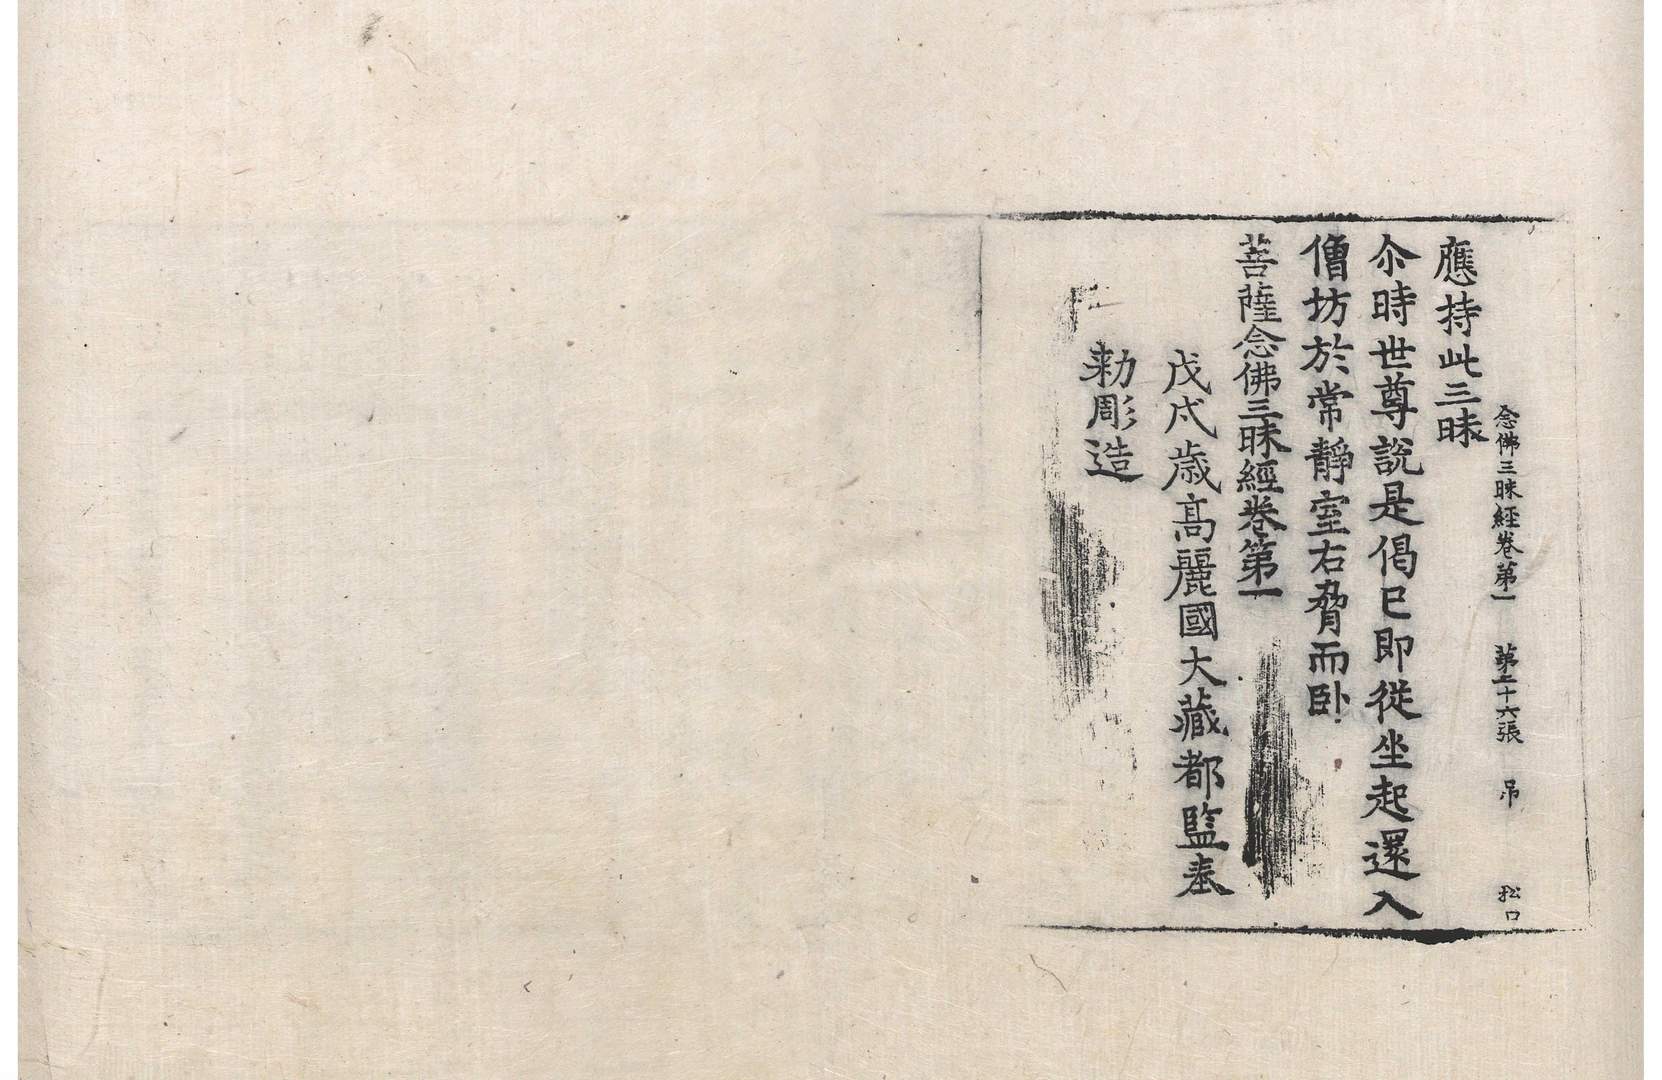 念佛三昧經卷第一　第二十六張　吊　松口
應持此三昧
尒時世尊說是偈已即從坐起還入
僧坊於常靜室右脅而卧
菩薩念佛三昧經卷第一
戊戌歲高麗國大藏都監奉
勅彫造